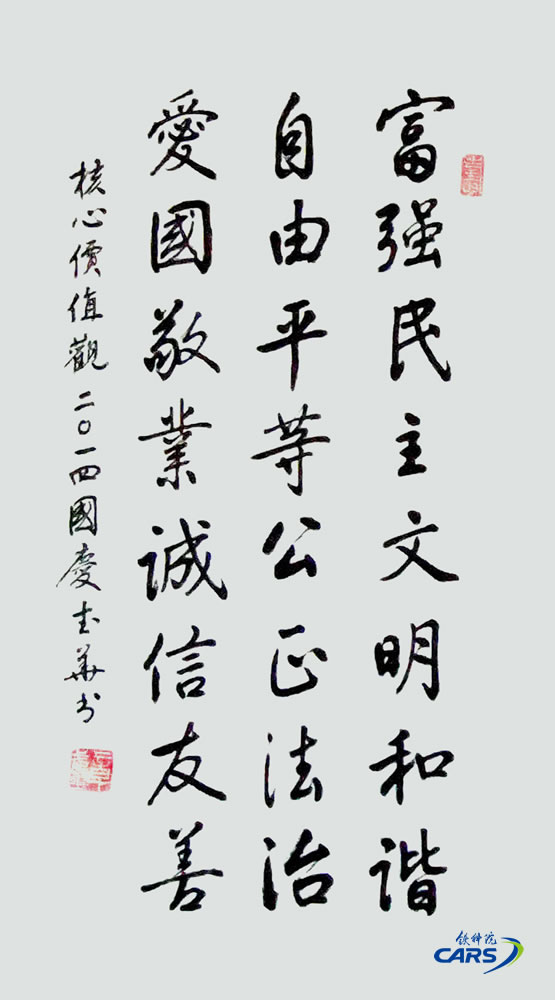 富强民主文明和谐
自由平等公正法治
愛國敬業誠信友善
核心價值觀二〇一四國慶志華书
铁科院
CARS